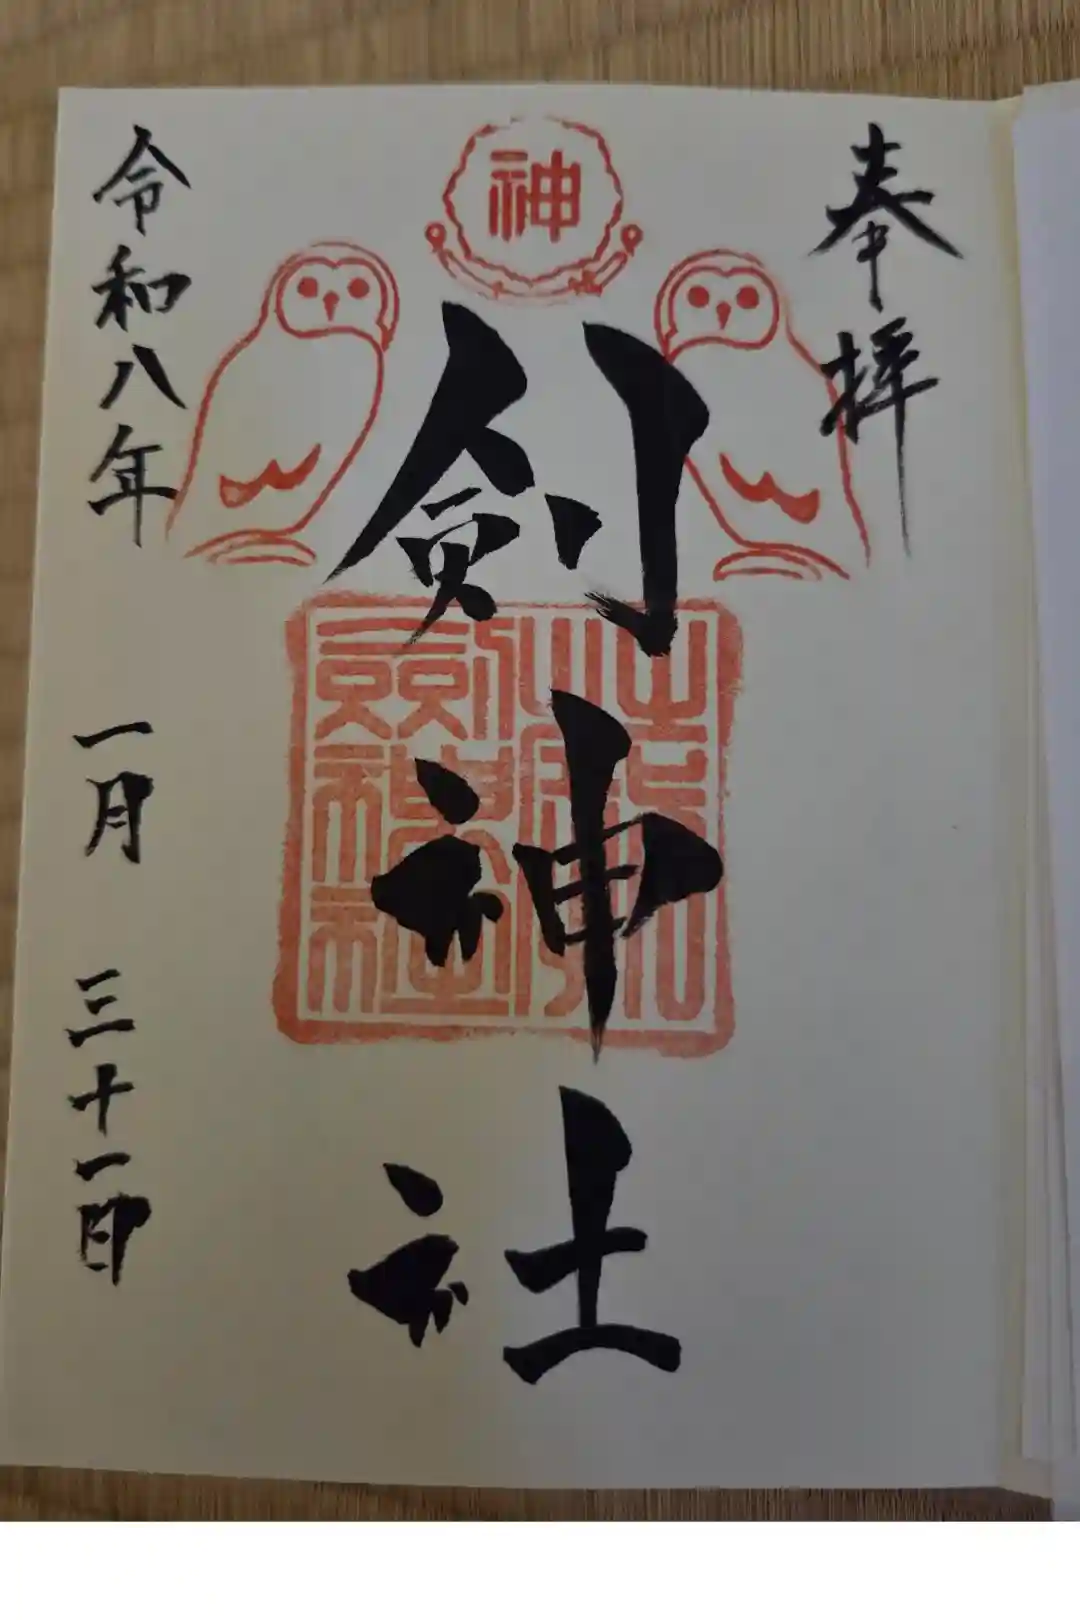 奉拝
神
剣神社
令和八年 一月 三十一日